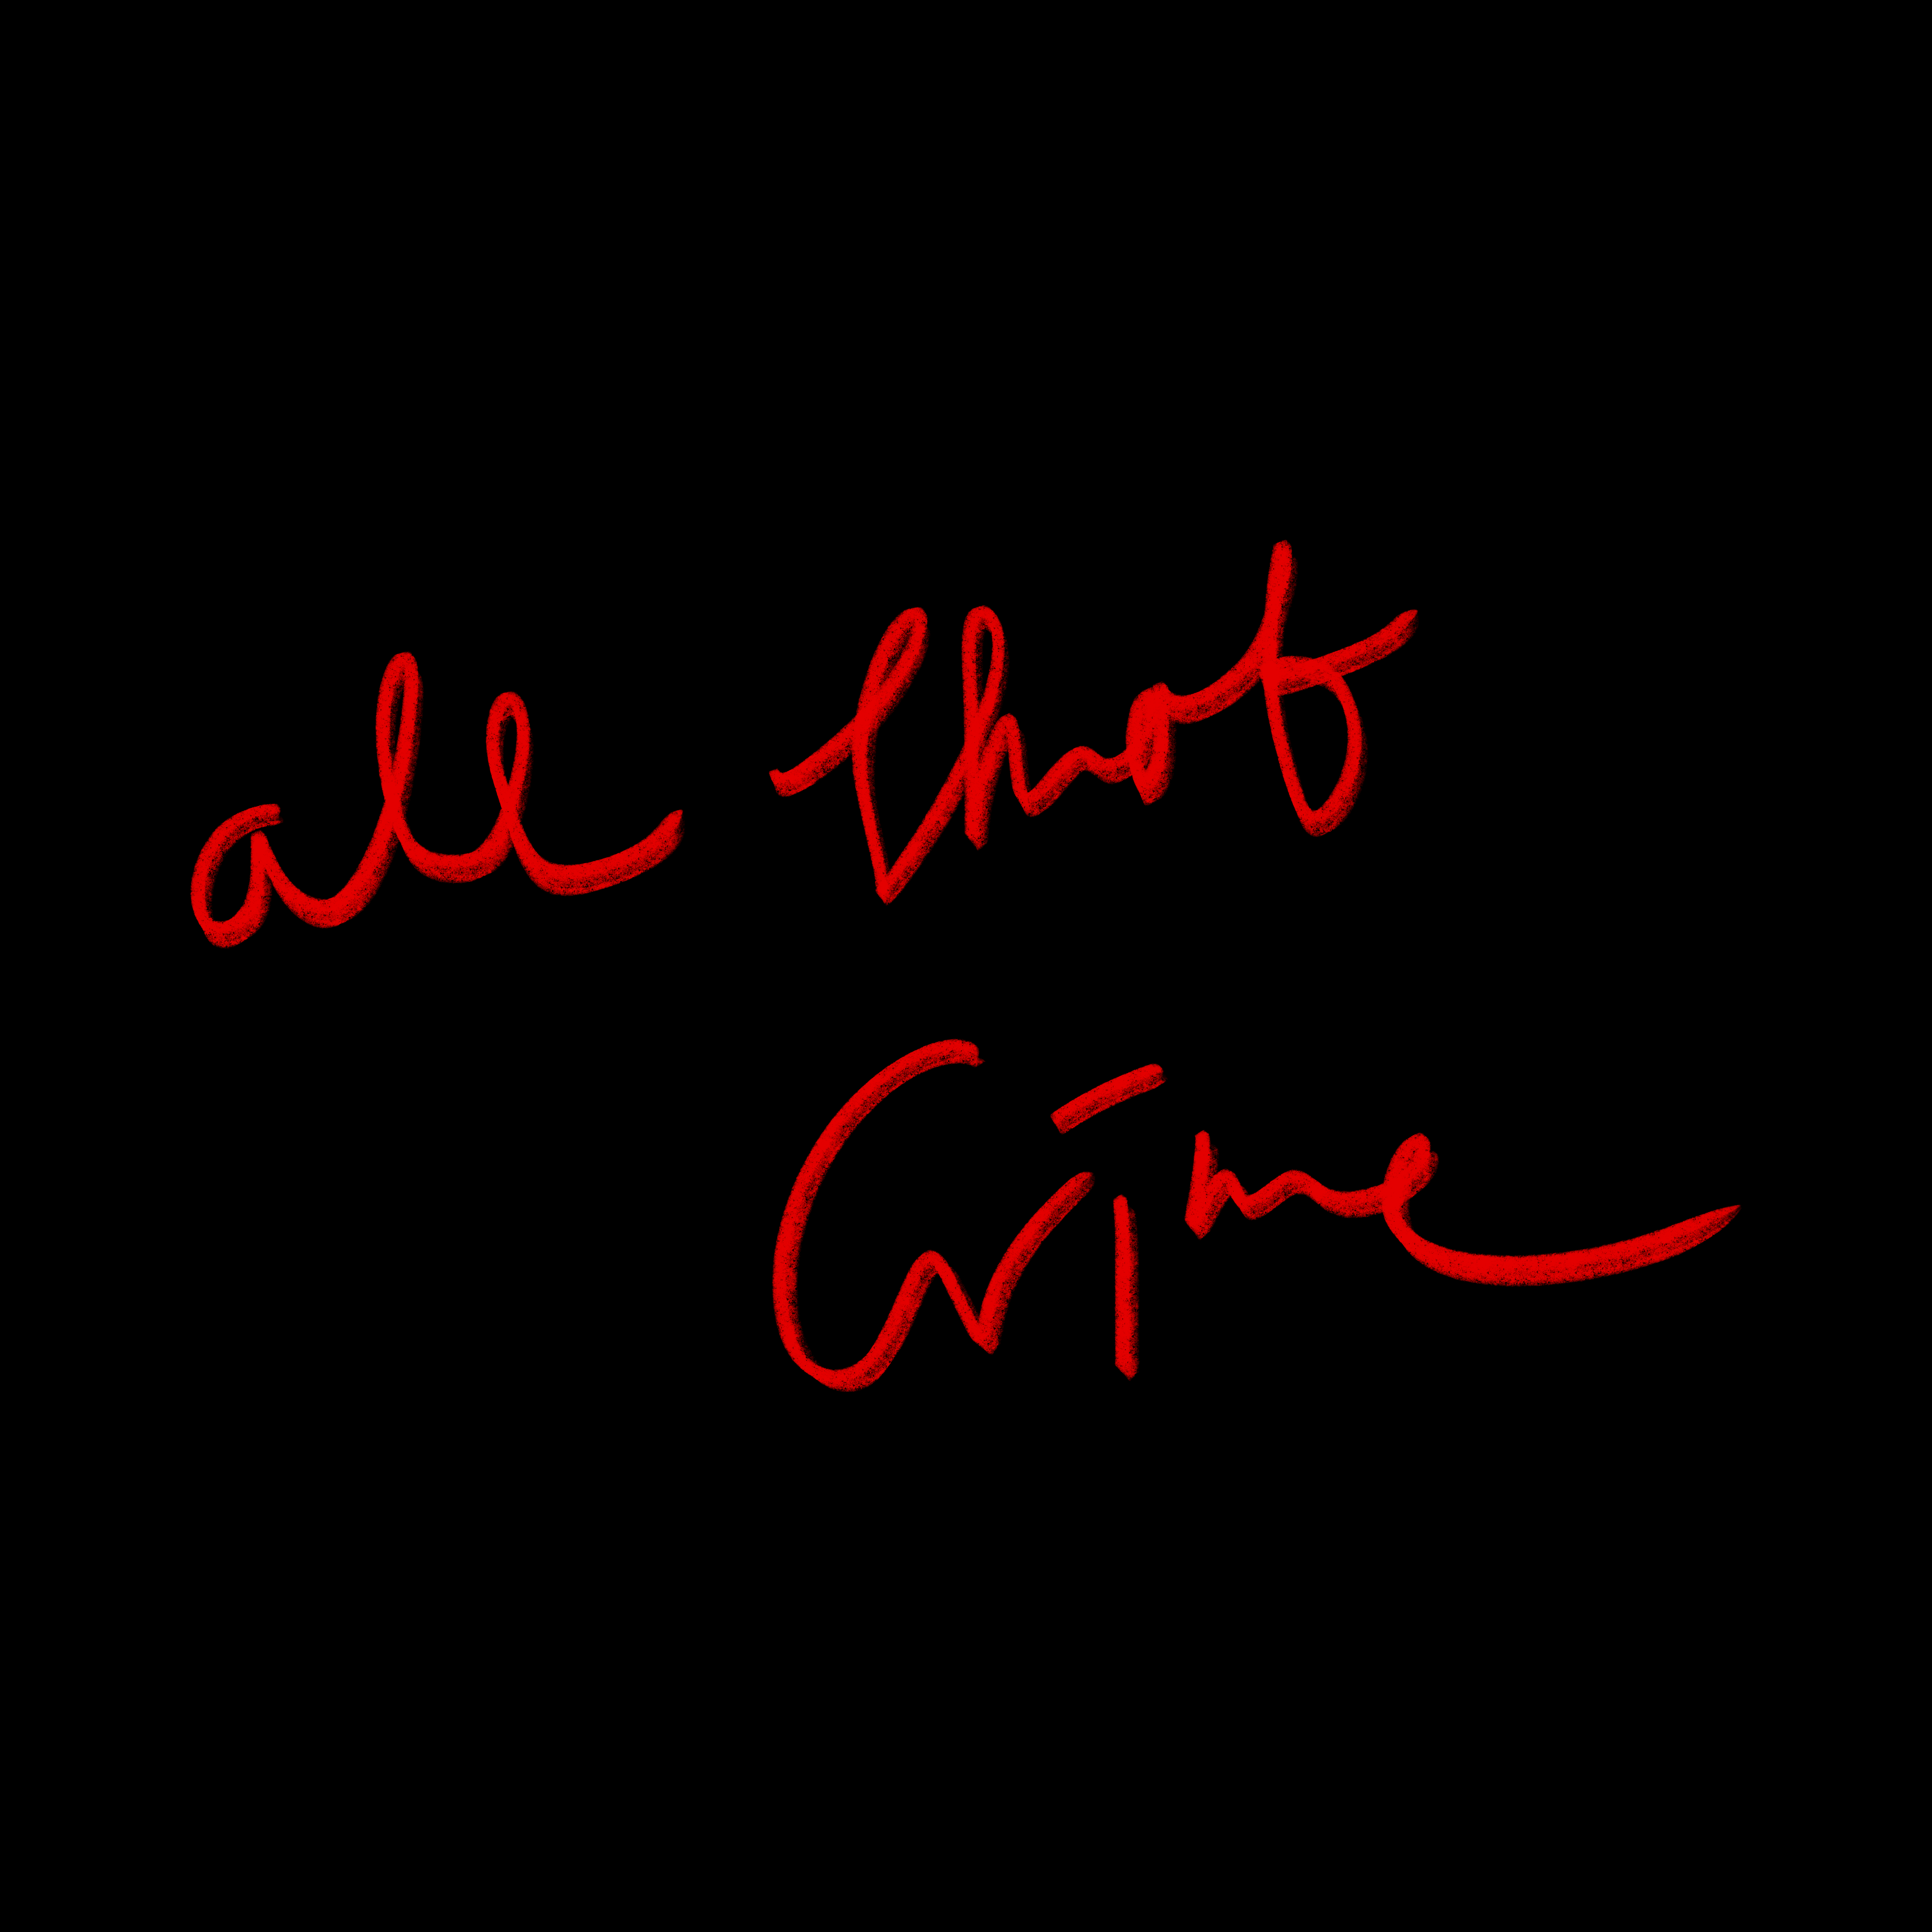 all that
Crime